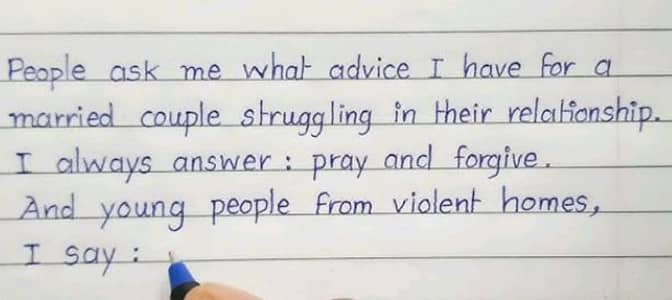 People ask me what advice I have for a
married couple struggling in their relationship.
I always answer : pray and forgive.
And young people from violent homes,
I say :